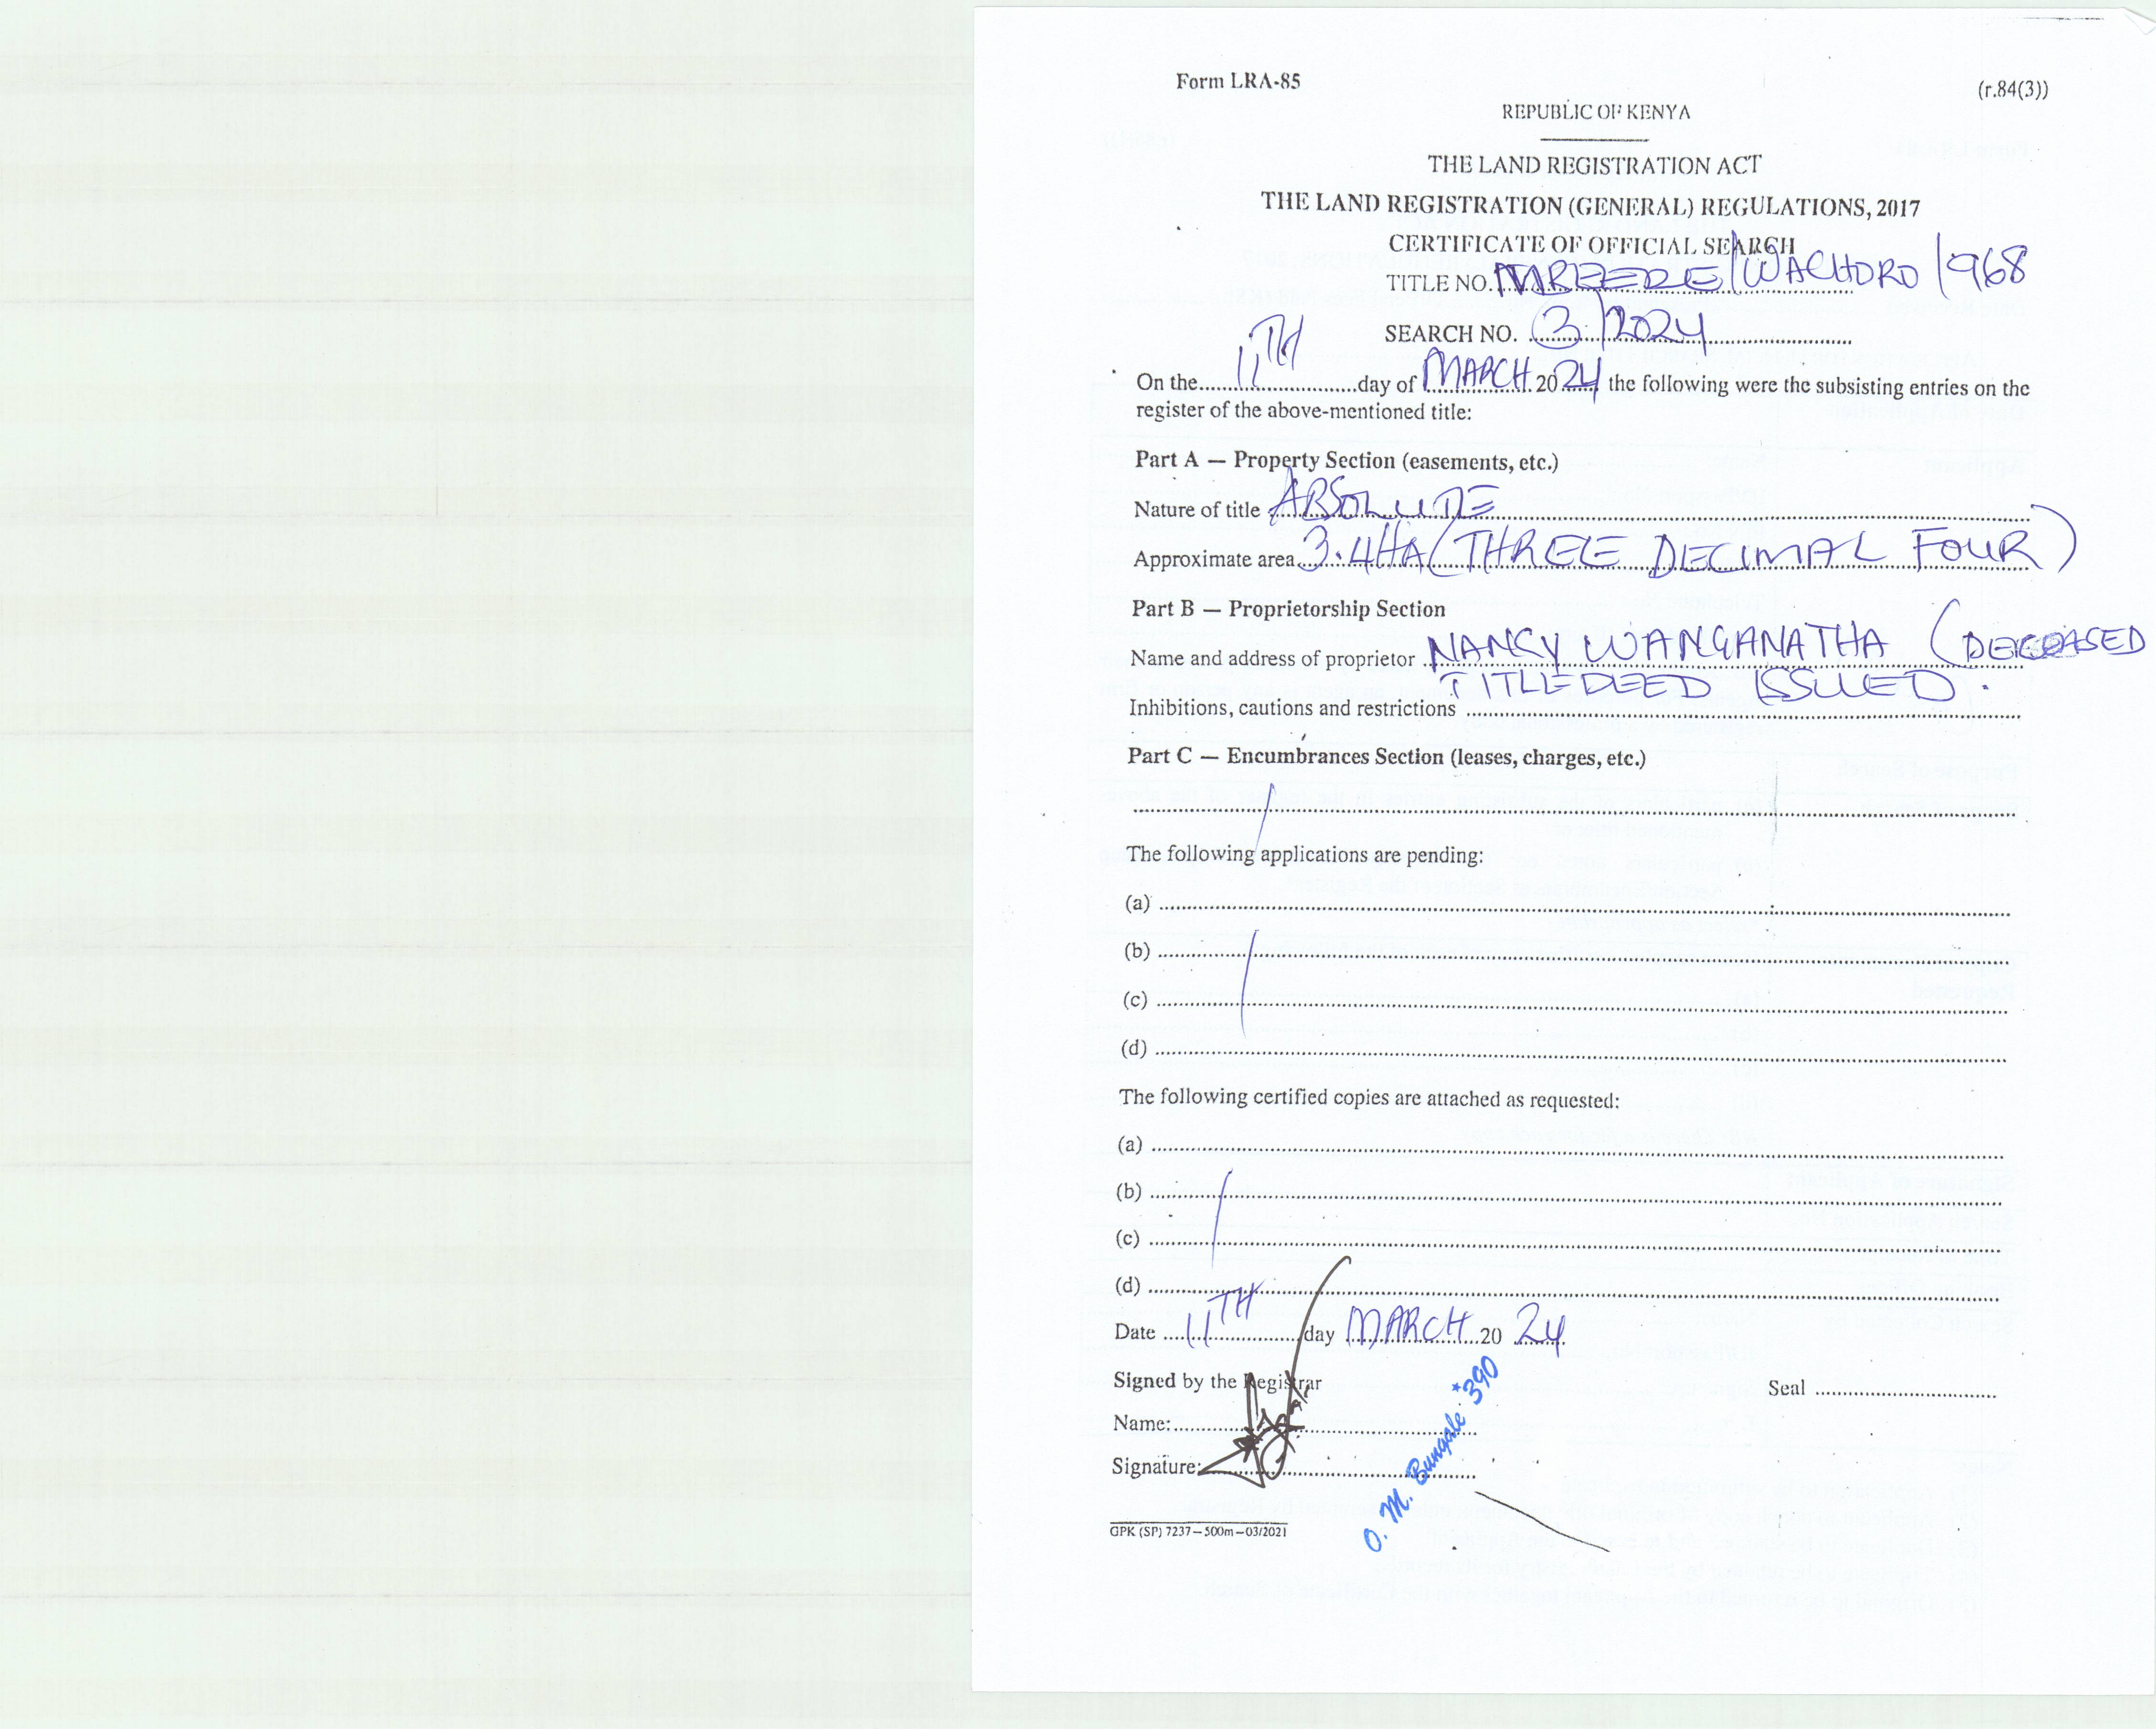 Form LRA-85
(r.84(3))
REPUBLIC OF KENYA
THE LAND REGISTRATION ACT
THE LAND REGISTRATION (GENERAL) REGULATIONS, 2017
CERTIFICATE OF OFFICIAL SEARCH
TITLE NO. MBEERE/WACHORO/968
SEARCH NO. 3/2024
On the 11TH day of MARCH 2024 the following were the subsisting entries on the
register of the above-mentioned title:
Part A — Property Section (easements, etc.)
Nature of title ABSOLUTE
Approximate area 3.4HA (THREE DECIMAL FOUR)
Part B — Proprietorship Section
Name and address of proprietor NANCY WANGANATHA (DECEASED
TITLE DEED ISSUED.
Inhibitions, cautions and restrictions
Part C — Encumbrances Section (leases, charges, etc.)
The following applications are pending:
(a)
(b)
(c)
(d)
The following certified copies are attached as requested:
(a)
(b)
(c)
(d)
Date 11TH day MARCH 20 24
Signed by the Registrar
Seal
Name:
Signature:
O. M. Bungale *390
GPK (SP) 7237—500m—03/2021